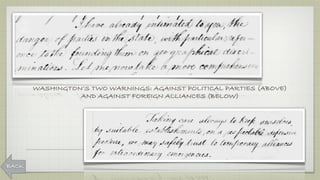 I have already intimated to you, the
danger of parties in the State, with particular refer-
ence to the founding them on geographical discri-
minations. Let me now take a more comprehensive
WASHINGTON'S TWO WARNINGS: AGAINST POLITICAL PARTIES (ABOVE)
AND AGAINST FOREIGN ALLIANCES (BELOW)
Taking care always to keep ourselves,
by suitable establishments, on a respectable defensive
posture, we may safely trust to temporary alliances
for extraordinary emergencies.
BACK